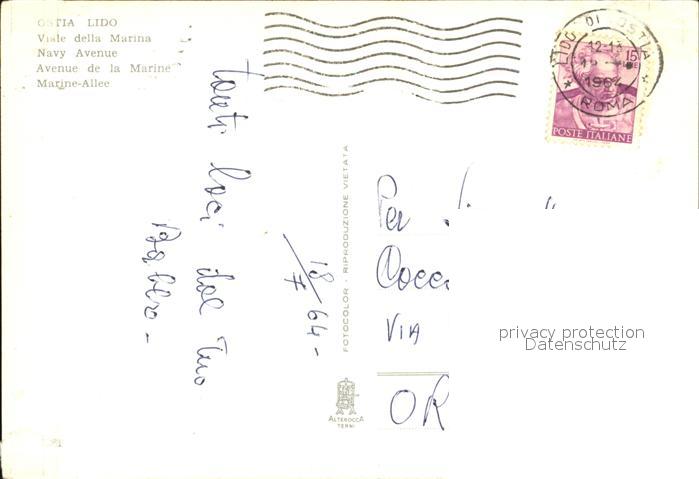 OSTIA LIDO
Viale della Marina
Navy Avenue
Avenue de la Marine
Marine-Allee
LIDO DI OSTIA
12-13
1964
ROMA
15
POSTE ITALIANE
tanti baci dal tuo
18/7 64-
FOTOCOLOR - RIPRODUZIONE VIETATA
Per
VIA
OR
privacy protection
Datenschutz
ALTEROCCA
TERNI